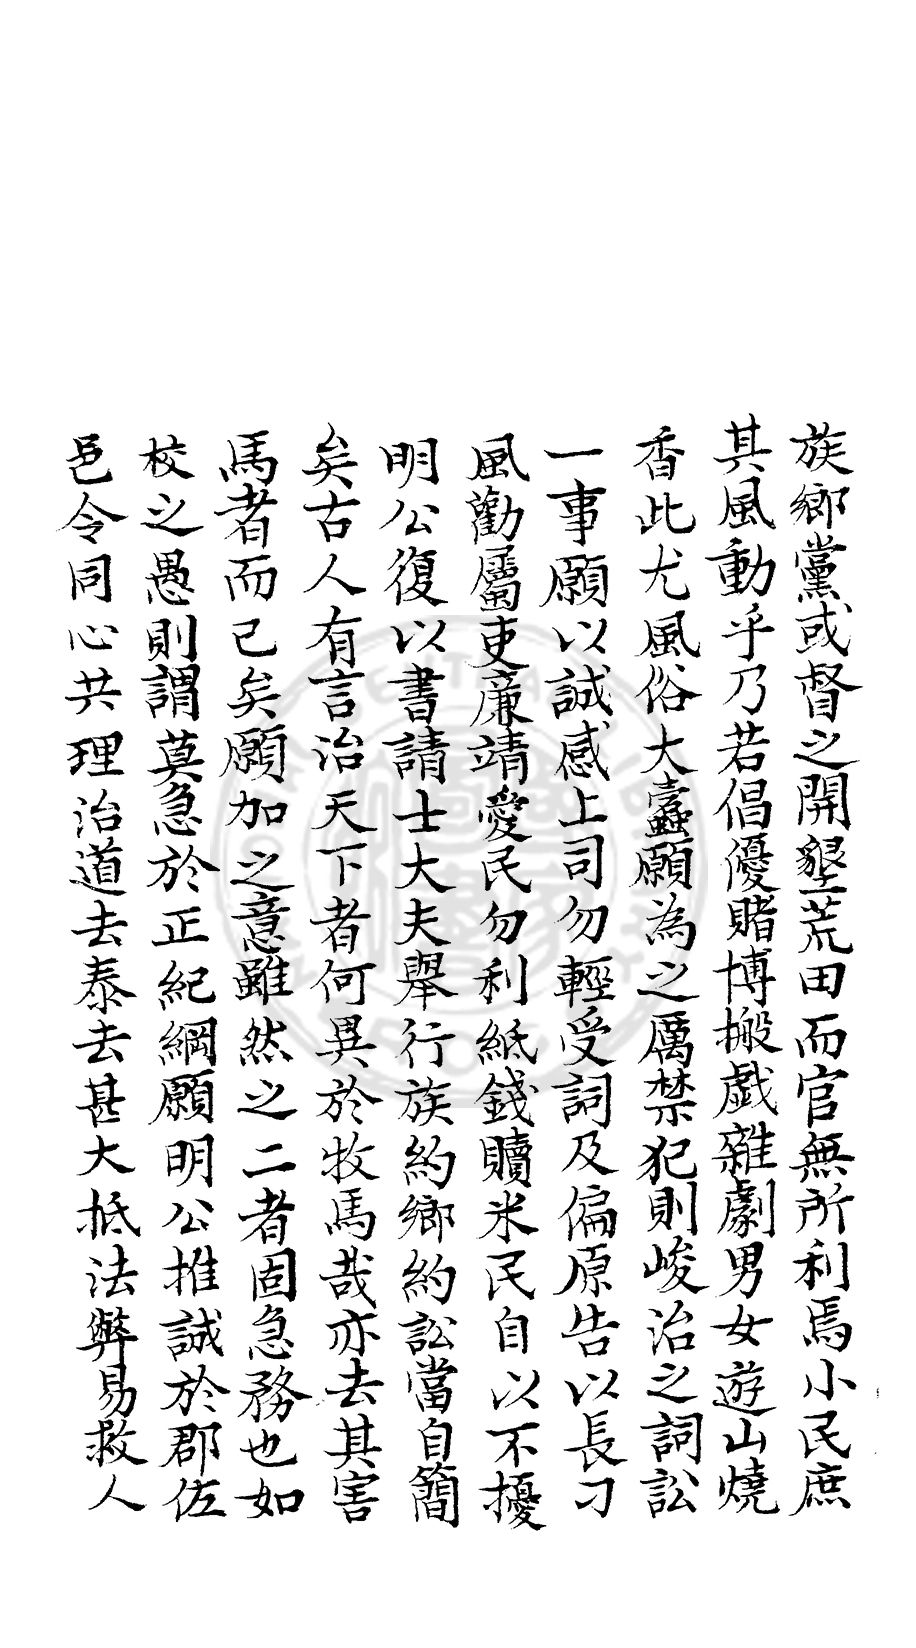 族鄉黨或督之開墾荒田而官無所利焉小民庶
其風動乎乃若倡優賭博搬戯雜劇男女遊山燒
香此尤風俗大蠹願為之厲禁犯則峻治之詞訟
一事願以誠感上司勿輕受詞及偏原告以長刁
風勸屬吏廉靖愛民勿利紙錢贖米民自以不擾
明公復以書請士大夫舉行族約鄉約訟當自簡
矣古人有言治天下者何異於牧馬哉亦去其害
馬者而已矣願加之意雖然之二者固急務也如
校之愚則謂莫急於正紀綱願明公推誠於郡佐
邑令同心共理治道去泰去甚大抵法弊易救人